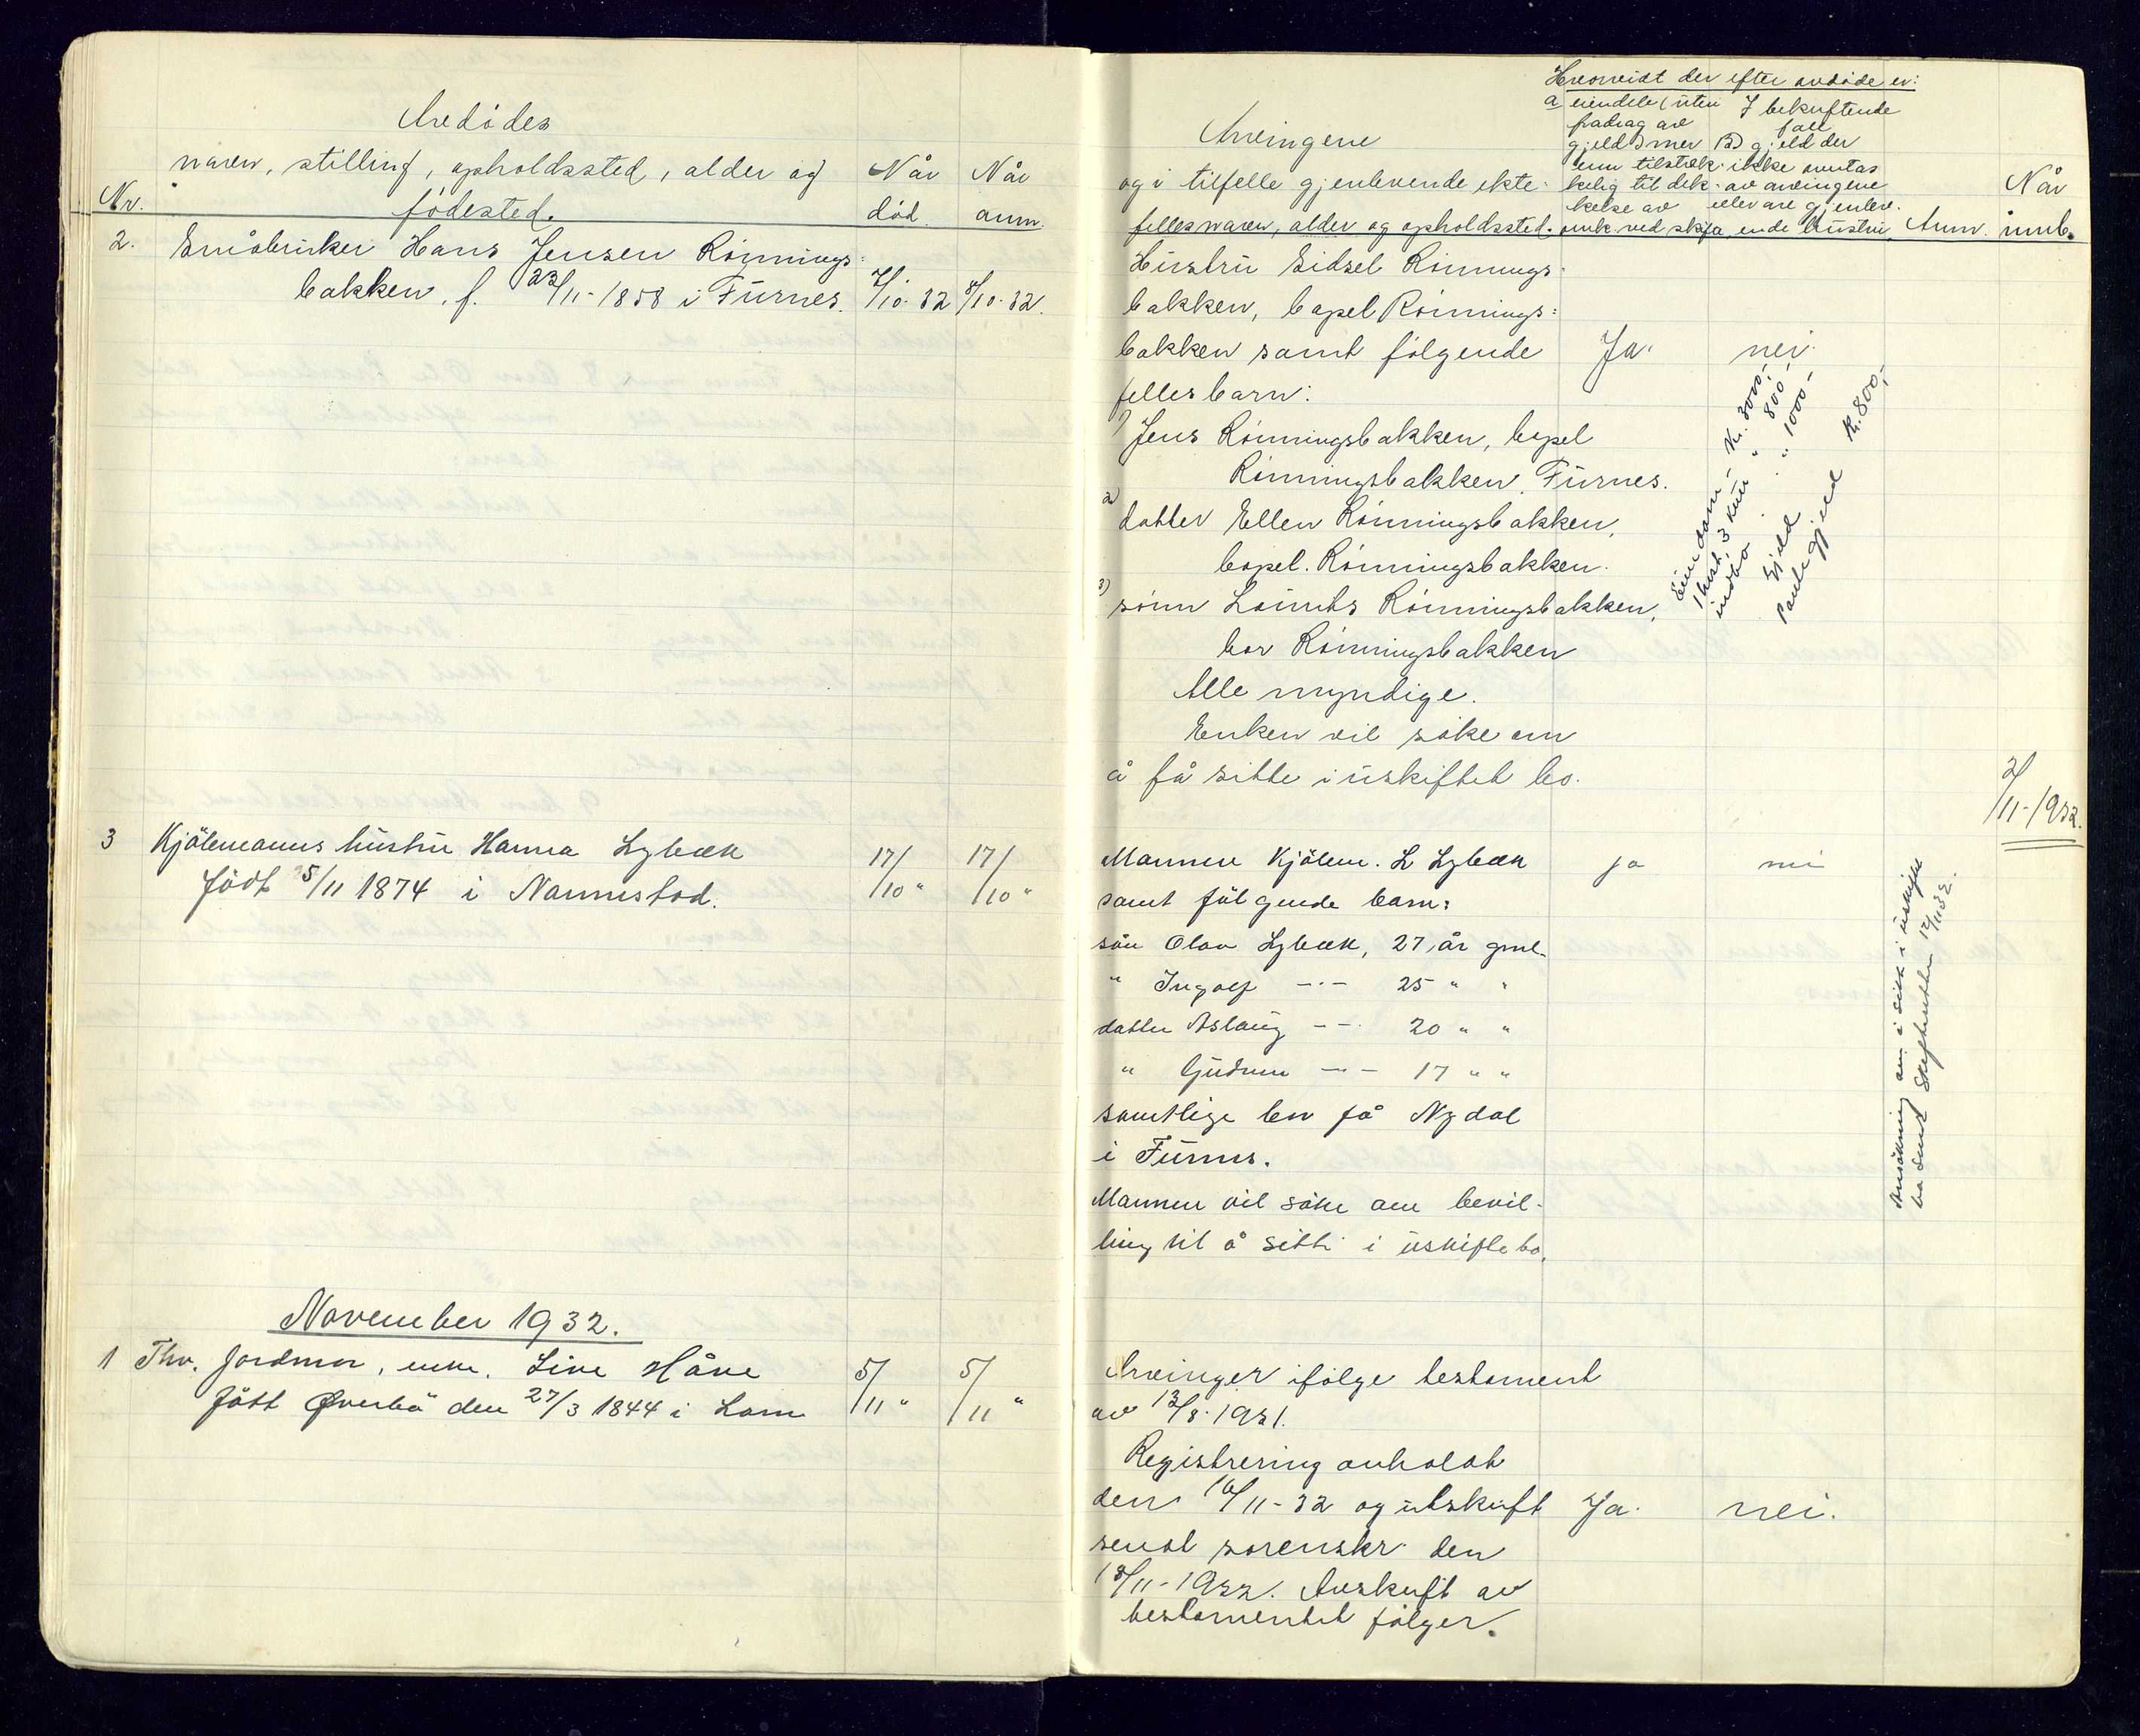 Avdødes
navn, stilling, opholdssted, alder og
fødested.
Nr.
Når
død.
Når
anm.
2. Småbruker Hans Jensen Rønnings=
bakken, f. 23/11-1858 i Furnes. 7/10-32 8/10-32.
3 Kjølemanns hustru Hanna Lybæk
født 5/11 1874 i Nannestad. 17/10 " 17/10 "
November 1932.
1 Thv. jordmor, enke. Live Håve
født Øverbø den 27/3 1844 i Lom 5/11 " 5/11 "
Arvingene
og i tilfelle gjenlevende ekte-
felles navn, alder og opholdssted.
Hvorvidt der efter avdøde er:
a eiendele (uten
fradrag av
gjeld) mer
enn tilstræk-
kelig til dek-
kelse av
omk. ved skifte
I bekreftende
fall
gjeld der
ikke overtas
av arvingene
eller av gjenlev-
ende hustru
Anm.
Når
innb.
Hustru Sidsel Rønnings-
bakken, bopel Rønnings=
bakken samt følgende Ja. nei.
felles barn:
1) Jens Rønningsbakken, bopel
Rønningsbakken, Furnes.
2) datter Ellen Rønningsbakken,
bopel. Rønningsbakken.
3) sønn Laurits Rønningsbakken,
bor Rønningsbakken
Alle myndige.
Enken vil søke om
å få sitte i uskiftet bo.
Eiendom - Kr. 3000,-
1 hest. 3 kuer " 800-
indbo " 1000-
Gjeld
Pantegjeld Kr. 800,-
2/11-1932.
Mannen Kjølem. L Lybæk ja nei
samt følgende barn:
søn Olav Lybæk, 27 år gml.
" Ingolf -"- 25 " "
datter Aslaug -"- 20 " "
" Gudrun -"- 17 " "
samtlige bor på Nydal
i Furnes.
Mannen vil søke om bevil-
ling til å sitte i uskifte bo.
Ansøkning om å sitte i uskifte
bo sendt Skifteretten 12/11 32.
Arvinger ifølge testament
av 13/8-1931.
Registrering avholdt
den 16/11-32 og utskrift Ja. nei.
sendt sorenskr. den
18/11-1932. Avskrift av
testamentet følger.